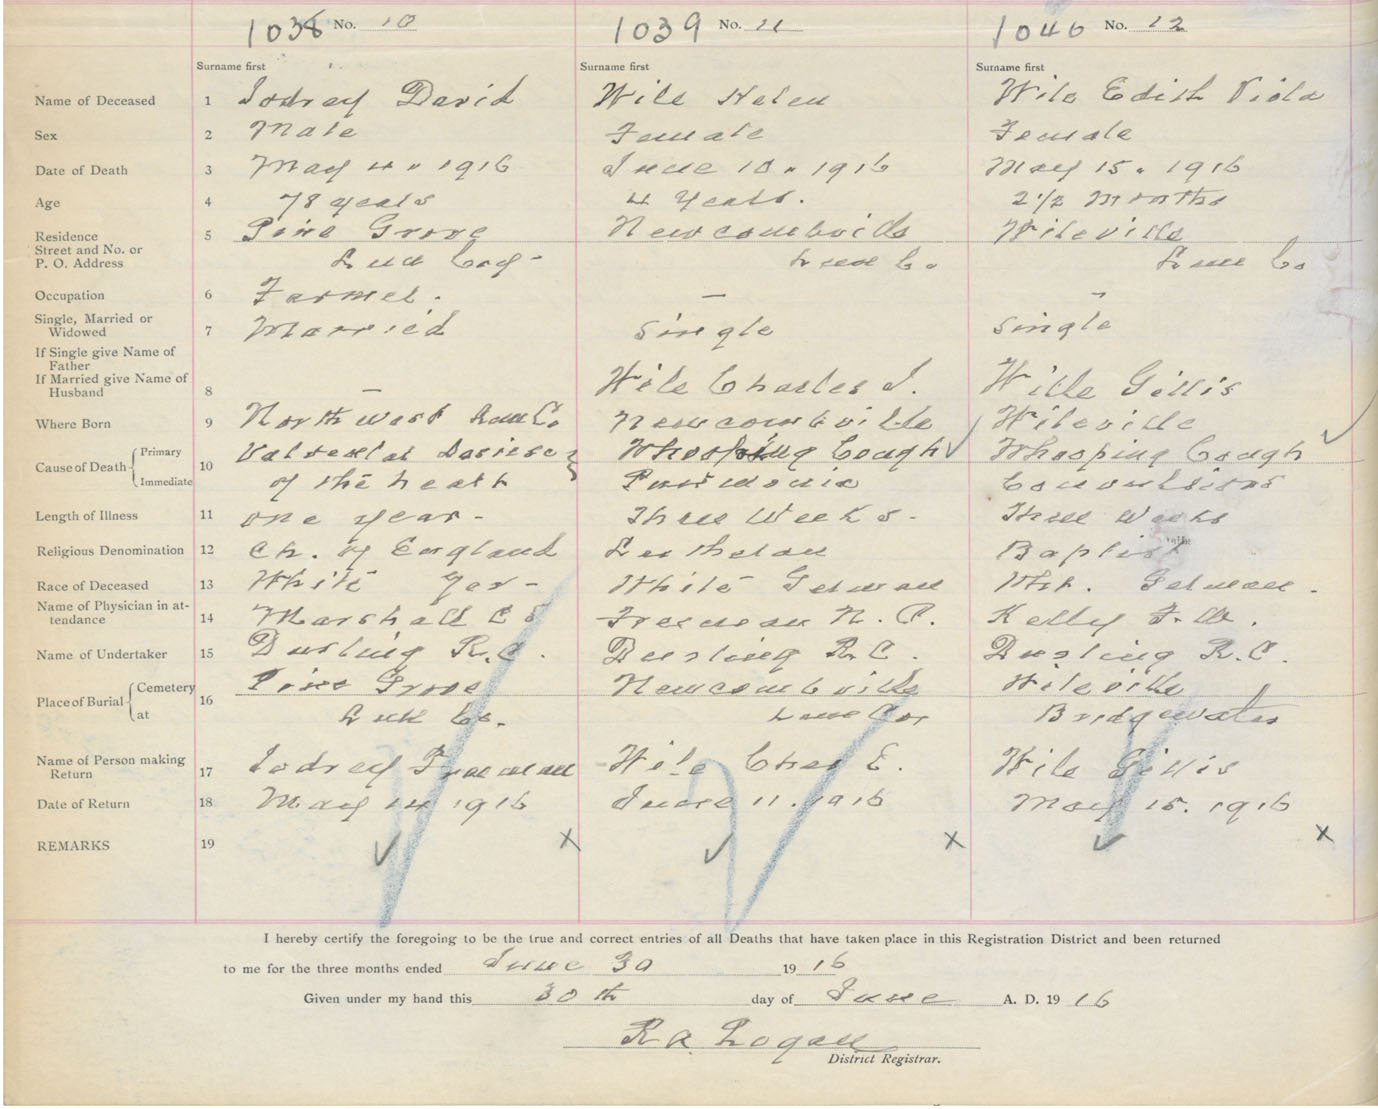 1038 No. 10 1039 No. 11 1040 No. 12
Surname first Surname first Surname first
Name of Deceased 1 Iodrey David Wile Helen Wile Edith Viola
Sex 2 Male Female Female
Date of Death 3 May 4. 1916 June 10. 1916 May 15. 1916
Age 4 78 years 4 Years. 2 1/2 Months
Residence 5 Pine Grove Newcombville Wileville
Street and No. or
P. O. Address Lun Coy- Lun Co. Lun Co
Occupation 6 Farmer. — –
Single, Married or
Widowed 7 Married Single Single
If Single give Name of
Father
If Married give Name of
Husband 8 — Wile Charles J. Wille Gillis
Where Born 9 Northwest Lun Co Newcombville Wileville
Cause of Death Primary 10 Valvular Whooping Cough Whooping Cough
Immediate of the heart Pneumonia Convulsions
Length of Illness 11 one year- Three Weeks. Three Weeks
Religious Denomination 12 Ch. of England Lutheran Baptist
Race of Deceased 13 White Ger- White German Wht. German.
Name of Physician in at-
tendance 14 Marshall C S Freeman N. P. Kelly F. W.
Name of Undertaker 15 Dursling R.C. Dursling R.C. Dursling R.C.
Place of Burial Cemetery 16 Pine Grove Newcombville Wileville
at Lun Co. Lun Co. Bridgewater
Name of Person making
Return 17 Iodrey Freeman Wile Chas E. Wile Gillis
Date of Return 18 May 14 1916 June 11. 1916 May 15. 1916
REMARKS 19 ✓ x ✓ x ✓ x
I hereby certify the foregoing to be the true and correct entries of all Deaths that have taken place in this Registration District and been returned
to me for the three months ended June 30 1916
Given under my hand this 30th day of June A. D. 1916
R A Logan
District Registrar.